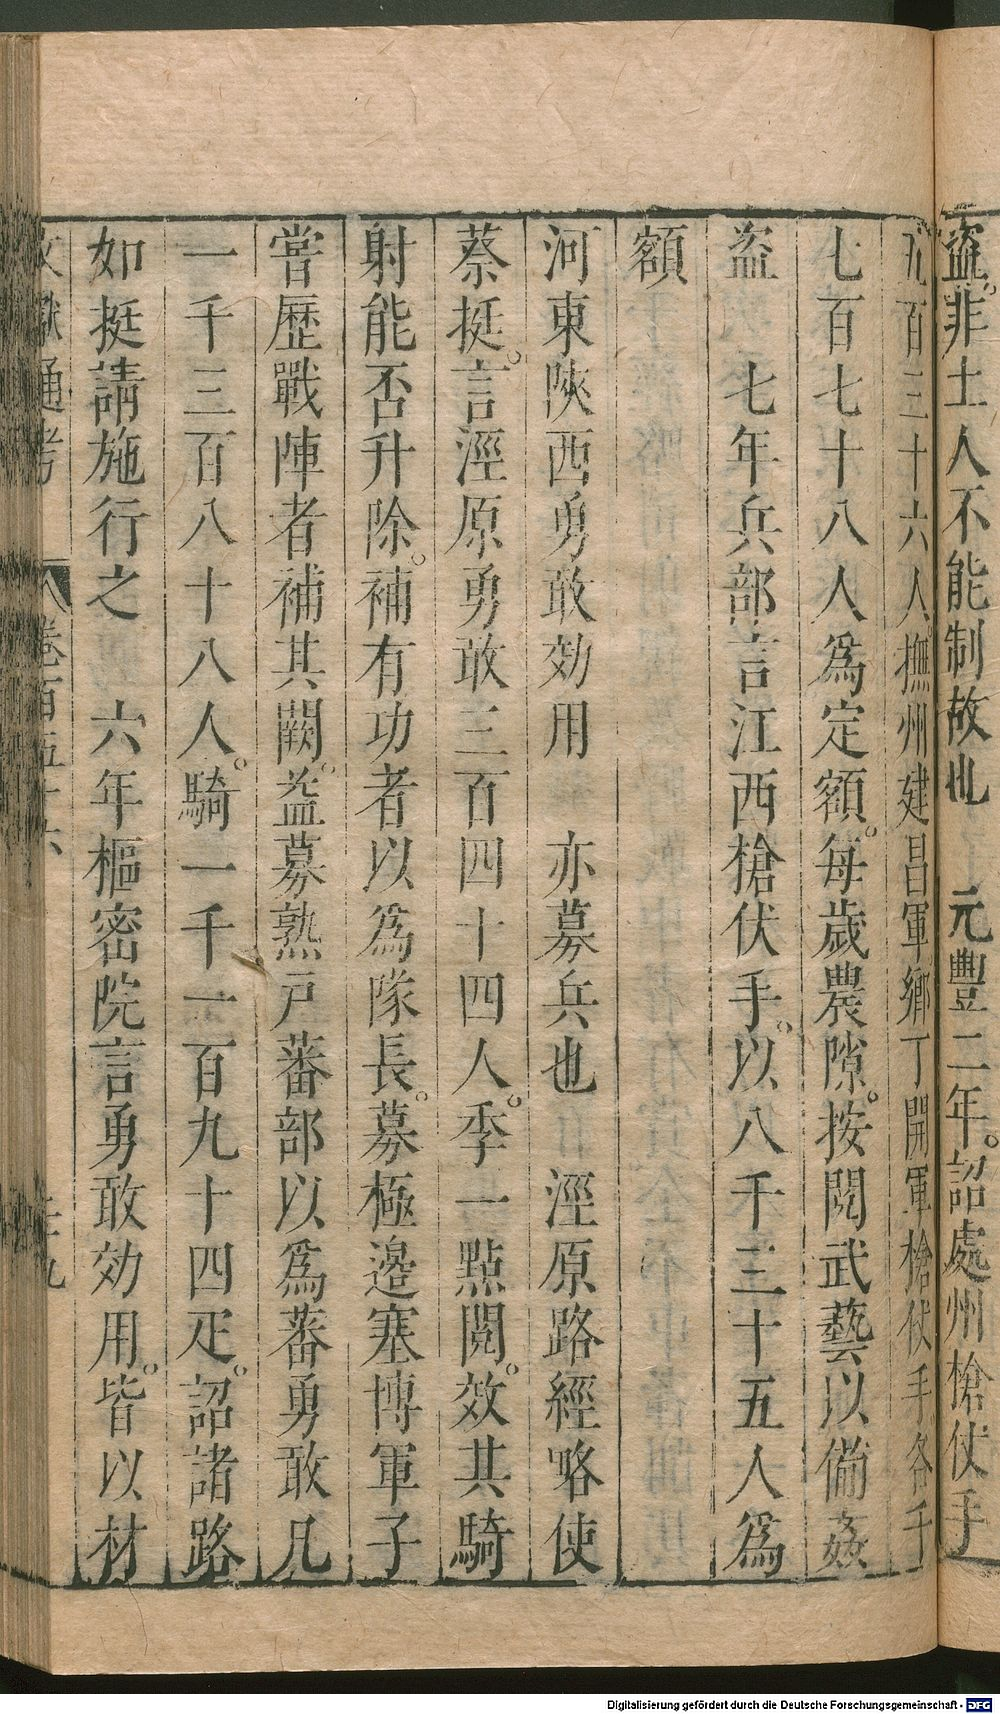 盜。非土人不能制故也　元豐二年。詔處州槍仗手
九百三十六人撫州建昌軍鄉丁開軍槍仗手各千
七百七十八人爲定額。每歲農隙。按閱武藝以備姦
盜　七年兵部言江西槍仗手。以八千三十五人爲
額
河東陝西勇敢効用　亦募兵也　涇原路經略使
蔡挺。言涇原勇敢三百四十四人。季一點閱。效其騎
射能否升除。補有功者以爲隊長。募極邊塞博軍子
嘗歷戰陣者補其闕。益募熟戸蕃部以爲蕃勇敢凡
一千三百八十八人。騎一千一百九十四疋。詔諸路
如挺請施行之　六年樞密院言勇敢効用。皆以材
文獻通考　卷百五十六　三十九
Digitalisierung gefördert durch die Deutsche Forschungsgemeinschaft - DFG